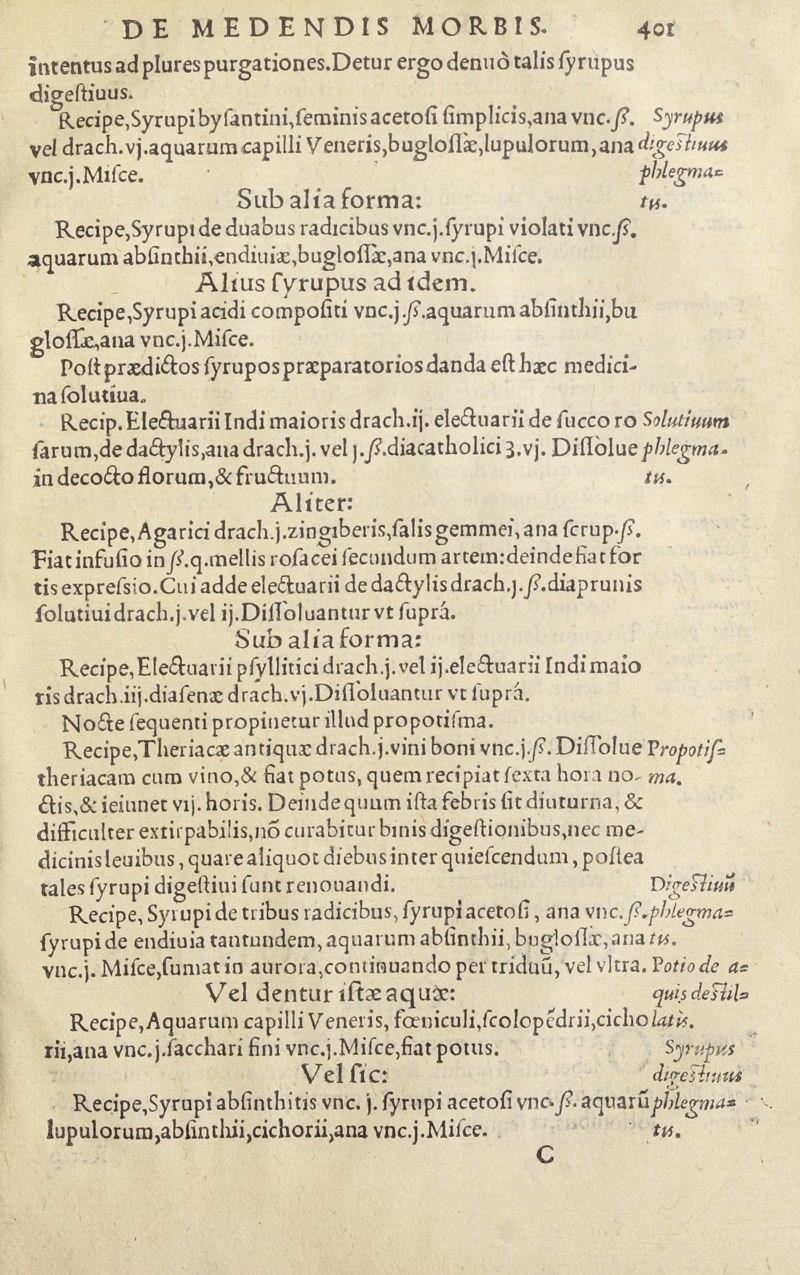 DE MEDENDIS MORBIS. 401
intentus ad plures purgationes. Detur ergo denuò talis ſyrupus
digeſtiuus.
Recipe, Syrupi byſantini, ſeminis acetoſi ſimplicis, ana vnc. ß. Syrupus
vel drach. vj. aquarum capilli Veneris, bugloſſæ, lupulorum, ana digeſtiuus
vnc. j. Miſce. phlegma=
Sub alia forma: tis.
Recipe, Syrupi de duabus radicibus vnc. j. ſyrupi violati vnc. ß.
aquarum abſinthii, endiuiæ, bugloſſæ, ana vnc. j. Miſce.
Alius ſyrupus ad idem.
Recipe, Syrupi acidi compoſiti vnc. j. ß. aquarum abſinthii, bu
gloſſæ, ana vnc. j. Miſce.
Poſt prædictos ſyrupos præparatorios danda eſt hæc medici-
na ſolutiua.
Recip. Electuarii Indi maioris drach. ij. electuarii de ſucco ro Solutiuum
ſarum, de dactylis, ana drach. j. vel j. ß. diacatholici ʒ. vj. Diſſolue phlegma-
in decocto florum, & fructuum. tis.
Aliter:
Recipe, Agarici drach. j. zingiberis, ſalis gemmei, ana ſcrup. ß.
Fiat infuſio in ß. q. mellis roſacei ſecundum artem: deinde fiat for
tis expreſsio. Cui adde electuarii de dactylis drach. j. ß. diaprunis
ſolutiui drach. j. vel ij. Diſſoluantur vt ſuprá.
Sub alia forma:
Recipe, Electuarii pſyllitici drach. j. vel ij. electuarii Indi maio
ris drach. iij. diaſenæ drach. vj. Diſſoluantur vt ſuprá.
Nocte ſequenti propinetur illud propotiſma.
Recipe, Theriacæ antiquæ drach. j. vini boni vnc. j. ß. Diſſolue Propotiſ=
theriacam cum vino, & fiat potus, quem recipiat ſexta hora no- ma.
ctis, & ieiunet vij. horis. Deinde quum iſta febris ſit diuturna, &
difficulter extirpabilis, nõ curabitur binis digeſtionibus, nec me-
dicinis leuibus, quare aliquot diebus inter quieſcendum, poſtea
tales ſyrupi digeſtiui ſunt renouandi. Digeſtiuũ
Recipe, Syrupi de tribus radicibus, ſyrupi acetoſi, ana vnc. ß. phlegma=
ſyrupi de endiuia tantundem, aquarum abſinthii, bugloſſæ, ana tis.
vnc. j. Miſce, ſumat in aurora, continuando per triduũ, vel vltra. Potio de a=
Vel dentur iſtæ aquæ: quis deſtil=
Recipe, Aquarum capilli Veneris, fœniculi, ſcolopẽdrii, cicho latis.
rii, ana vnc. j. ſacchari fini vnc. j. Miſce, fiat potus. Syrupus
Vel ſic: digeſtiuus
Recipe, Syrupi abſinthitis vnc. j. ſyrupi acetoſi vnc. ß. aquarũ phlegma=
lupulorum, abſinthii, cichorii, ana vnc. j. Miſce. tis.
C